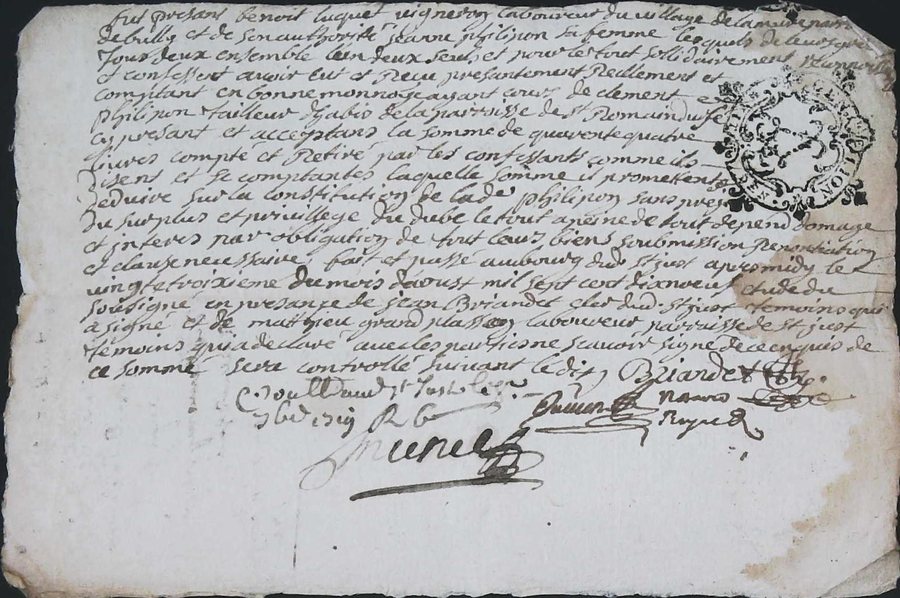 fut presant benoit luquet vigneron laboureur du village de la
de bully et de son authorité jeanne philipon sa femme lesquels de leurs gré
tous deux ensemble lun deux seul et pour le tout sollidairement
et confessent avoir eut et Receu presantement Reellement et
comptant en bonne monnoye ayant cours de clement
philipon tailleur dhabis de la parroisse de st Romain
cy presant et acceptans la somme de quarente quatre
livres compté et Retiré par les confessants comme ils
disent et se comptantes laquelle somme il promettent
deduire sur la constitution de lade philipon sans
du surplus et privillege du dabe le tout a peine de tout depend domage
et interes par obligation de tout leurs biens soubmission Renontiation
et clause necessaire fait et passé au bourg dud st just apres midy le
vingt troixieme du mois daoust mil sept cent dixneuf etude du
sousigné en presance de jean Briandet clerc dud. st just temoins qui
a signé et de matthieu grand plasson laboureur parroisse de st just
temoins qui a declaré avec les parties ne scavoir signé de ce enquis de
ce sommé sera controllé suivant ledit Briandet
Controllé aud st just le
7be 1719 R 6
notaire
Royal